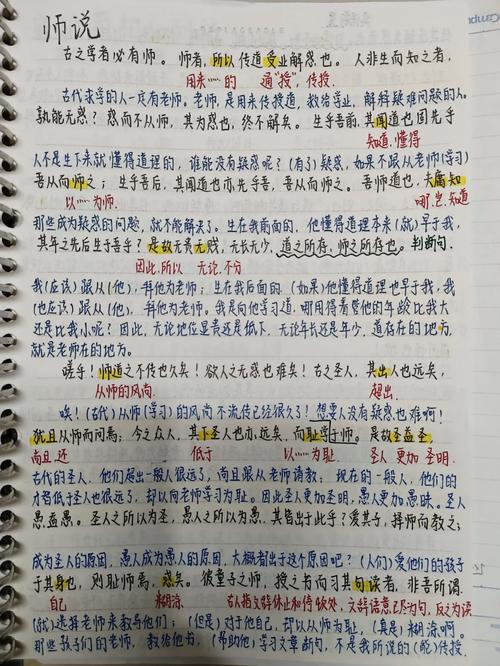 师说
古之学者必有师。师者,所以传道受业解惑也。人非生而知之者,
用来……的 通"授",传授.
古代求学的人一定有老师。老师,是用来传授道,教给学业,解释疑难问题的人。
孰能无惑?惑而不从师,其为惑也,终不解矣。生乎吾前,其闻道也固先乎
知道.懂得
人不是生下来就懂得道理的,谁能没有疑惑呢?(有了)疑惑,如果不跟从老师(学习)
吾从而师之;生乎吾后,其闻道也亦先乎吾,吾从而师之。吾师道也,夫庸知
以……为师 哪.岂.知道
那些成为疑惑的问题,就不能解决了。生在我前面的,他懂得道理本来(就)早于我,
其年之先后生于吾乎?是故无贵无贱,无长无少,道之所存,师之所存也。判断句.
因此.所以 无论.不分
我(应该)跟从(他),拜他为老师;生在我后面的(如果)他懂得道理也早于我,我
(也应该)跟从(他),拜他为老师。我是向他学习道,哪用得着管他的年龄比我大
还是比我小呢?因此,无论地位显贵还是低下,无论年长还是年少,道存在的地方,
就是老师在的地方。
嗟乎!师道之不传也久矣!欲人之无惑也难矣!古之圣人,其出人也远矣,
从师的风尚 超出.
唉!(古代)从师(学习)的风尚不流传已经很久了!想要人没有疑惑也难啊!
犹且从师而问焉;今之众人,其下圣人也亦远矣,而耻学于师。是故圣益圣,
尚且.还 低于 以……为耻 圣人 更加 圣明.
古代的圣人,他们超出一般人很远了,尚且跟从老师请教;现在的一般人,他们的
才智低于圣人也很远了,却以向老师学习为耻。因此圣人更加圣明,愚人更加愚昧。圣人
愚益愚。圣人之所以为圣,愚人之所以为愚,其皆出于此乎?爱其子,择师而教之;
成为圣人的原因,愚人成为愚人的原因,大概都出于这个原因吧?(人们)爱他们的孩子
于其身也,则耻师焉,惑矣。彼童子之师,授之书而习其句读者,非吾所谓
自己 糊涂. 古人指文辞休止和停顿处.文辞语意已尽为句,反之为读
(就)选择老师来教导他们;(但是)对于他自己,却以从师为耻,(真是)糊涂啊。
那些孩子们的老师,教给他书,(帮助他)学习文章断句,不是我所说的(能)传授